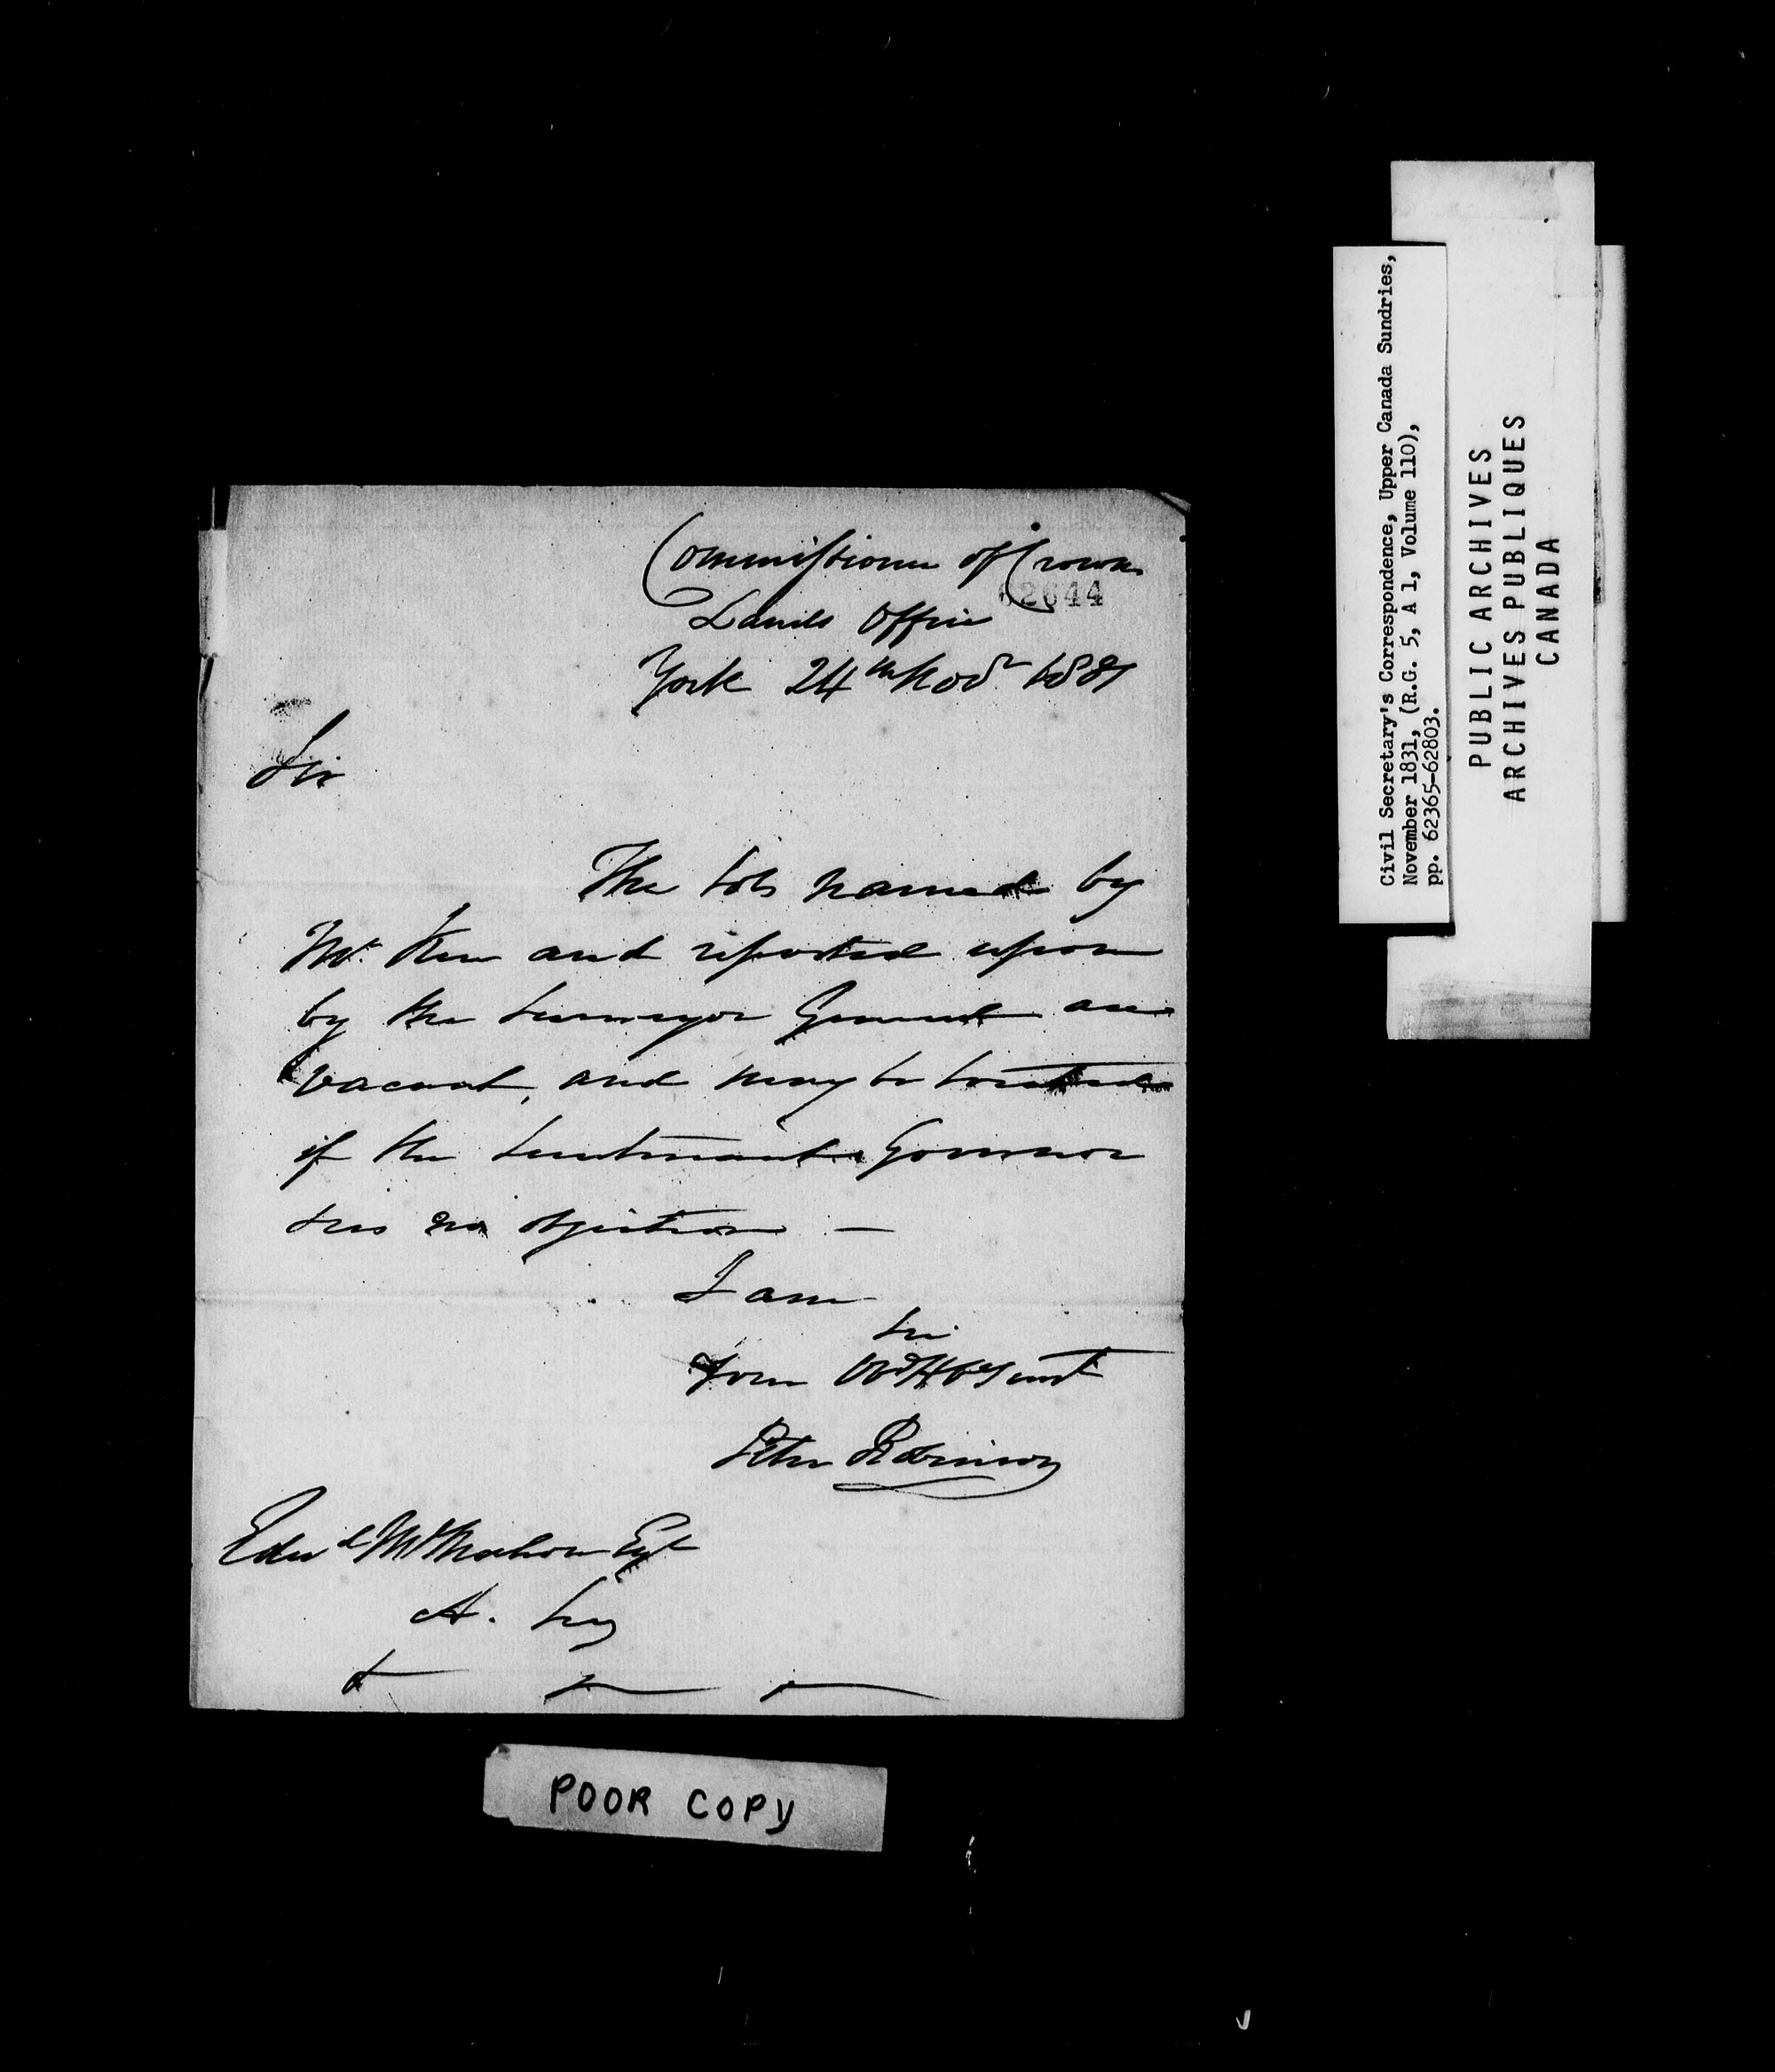 Commissioner of Crown
62644
Lands Office
York 24th Novr 1831
Sir
The lots named by
Mr Kerr and reported upon
by the Surveyor General are
vacant, and may be located
if the Lieutenant Governor
sees no objection —
I am
Sir
Your Obt Hbl Servt
Peter Robinson
Edwd McMahon Esqr
A. Secy
&c &c &c
POOR COPY
Civil Secretary's Correspondence, Upper Canada Sundries,
November 1831, (R.G. 5, A 1, Volume 110),
pp. 62365-62803.
PUBLIC ARCHIVES
ARCHIVES PUBLIQUES
CANADA